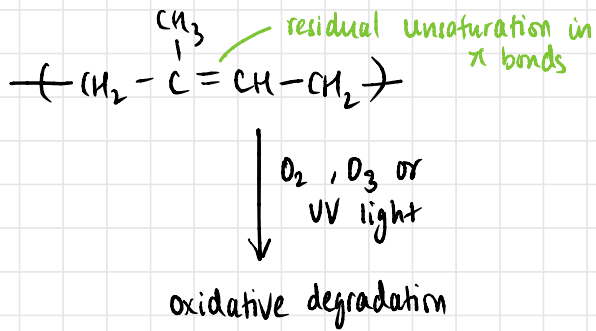 CH3
residual unsaturation in
π bonds
-(CH2-C=CH-CH2)-
O2, O3 or
UV light
oxidative degradation